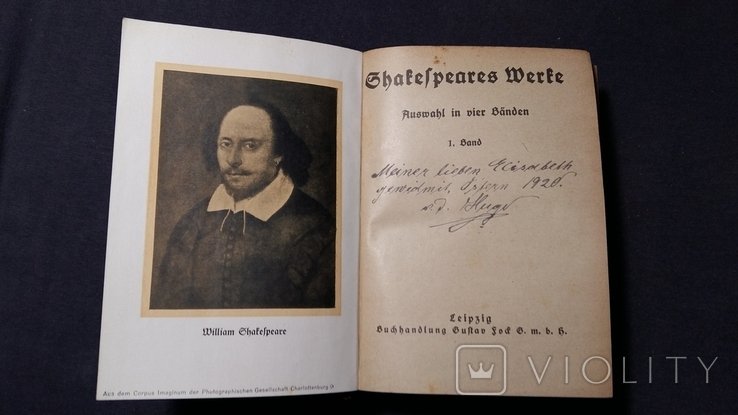 William Shakeſpeare
Aus dem Corpus Imaginum der Photographischen Gesellschaft Charlottenburg
Shakeſpeares Werke
Auswahl in vier Bänden
1. Band
Meiner lieben Elisabeth
gewidmet, Ostern 1920.
v. d. Hugo
Leipzig
Buchhandlung Gustav Fock G. m. b. H.
VIOLITY